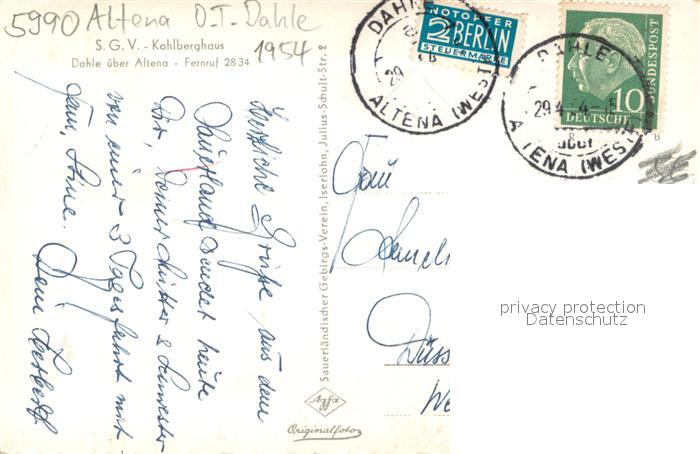 5990 Altena O.T. Dahle
1954
S.G.V. - Kohlberghaus
Dahle über Altena - Fernruf 2834
NOTOPFER
2 BERLIN
STEUERMARKE
DAHLE
29
ALTENA (WES
DAHLE
29.4. 4-15
ALTENA (WES
über
DEUTSCHE
BUNDESPOST
10
Herzliche Grüße aus dem
Sauerland sendet heute
Dir, Deiner Mutter & Schwester
von einer 3 Tagesfahrt mit
Dein Herbert
Sauerländischer Gebirgs-Verein, Iserlohn, Julius-Schult-Str. 2
Agfa
Originalfoto
Frau
Düss
We
privacy protection
Datenschutz